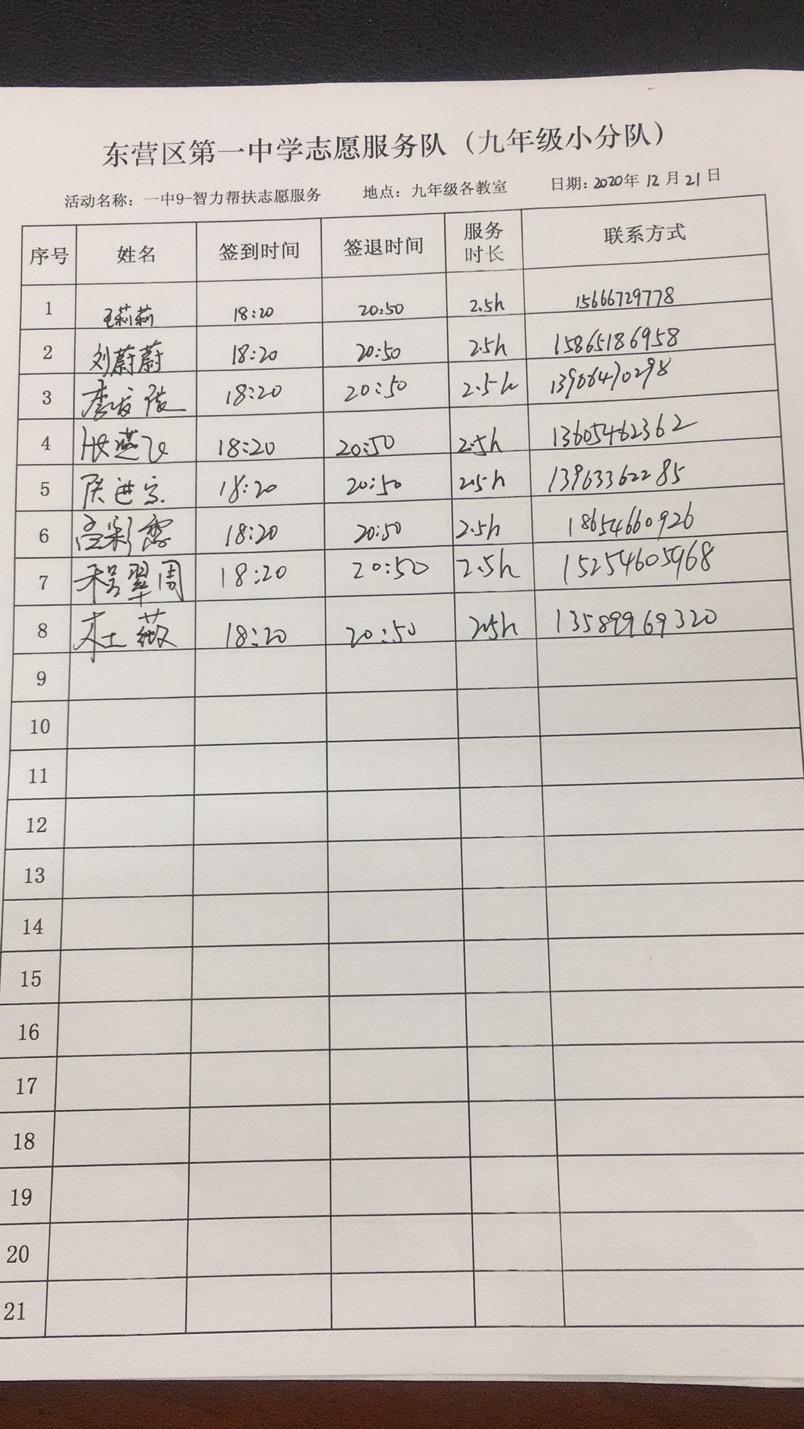 东营区第一中学志愿服务队（九年级小分队）
活动名称：一中9-智力帮扶志愿服务 地点：九年级各教室 日期：2020年12月21日
序号 姓名 签到时间 签退时间 服务时长 联系方式
1 王莉莉 18:20 20:50 2.5h 15666729778
2 刘蔚蔚 18:20 20:50 2.5h 15865186958
3 18:20 20:50 2.5h 13906470298
4 张燕飞 18:20 20:50 2.5h 13605462362
5 18:20 20:50 2.5h 13963362285
6 高彩霞 18:20 20:50 2.5h 18654660926
7 程翠周 18:20 20:50 2.5h 15254605968
8 杜薇 18:20 20:50 2.5h 13589969320
9
10
11
12
13
14
15
16
17
18
19
20
21